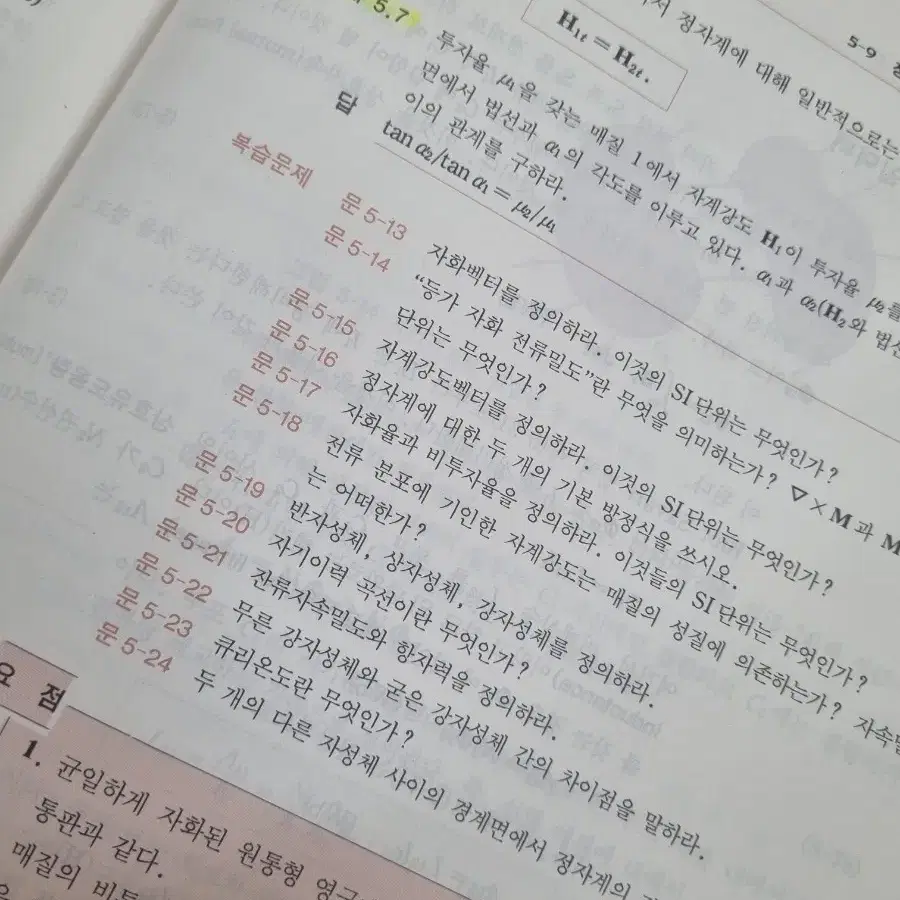 5-9
서 정자계에 대해 일반적으로는
H1t = H2t.
5.7
투자율 μ1을 갖는 매질 1에서 자계강도 H1이 투자율 μ2를
면에서 법선과 α1의 각도를 이루고 있다. α1과 α2(H2와 법선
이의 관계를 구하라.
답 tan α2/tan α1 = μ2/μ1
복습문제
문 5-13 자화벡터를 정의하라. 이것의 SI단위는 무엇인가?
문 5-14 “등가 자화 전류밀도”란 무엇을 의미하는가? ∇×M과 M
단위는 무엇인가?
문 5-15 자계강도벡터를 정의하라. 이것의 SI단위는 무엇인가?
문 5-16 정자계에 대한 두 개의 기본 방정식을 쓰시오.
문 5-17 자화율과 비투자율을 정의하라. 이것들의 SI단위는 무엇인가?
문 5-18 전류 분포에 기인한 자계강도는 매질의 성질에 의존하는가? 자속밀
는 어떠한가?
문 5-19 반자성체, 상자성체, 강자성체를 정의하라.
문 5-20 자기이력 곡선이란 무엇인가?
문 5-21 잔류자속밀도와 항자력을 정의하라.
문 5-22 무른 강자성체와 굳은 강자성체 간의 차이점을 말하라.
문 5-23 큐리온도란 무엇인가?
문 5-24 두 개의 다른 자성체 사이의 경계면에서 정자계의
요 점
1. 균일하게 자화된 원통형 영구
통판과 같다.
매질의 비투